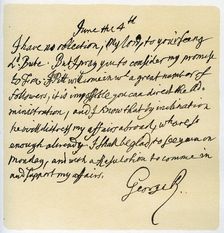 June the 4th
I have no objection, My Lord, to your seeing
Ld Bute. But pray you to consider my promise
to Fox. If Pitt will come in wth a great number of
followers, it is impossible you can direct the Ad-
ministration, and I know that by inclination
he will distress my affairs abroad, which are so
enough already. I shall be glad to see you on
Monday, and with a Resolution to come in
and support my affairs.
George R.